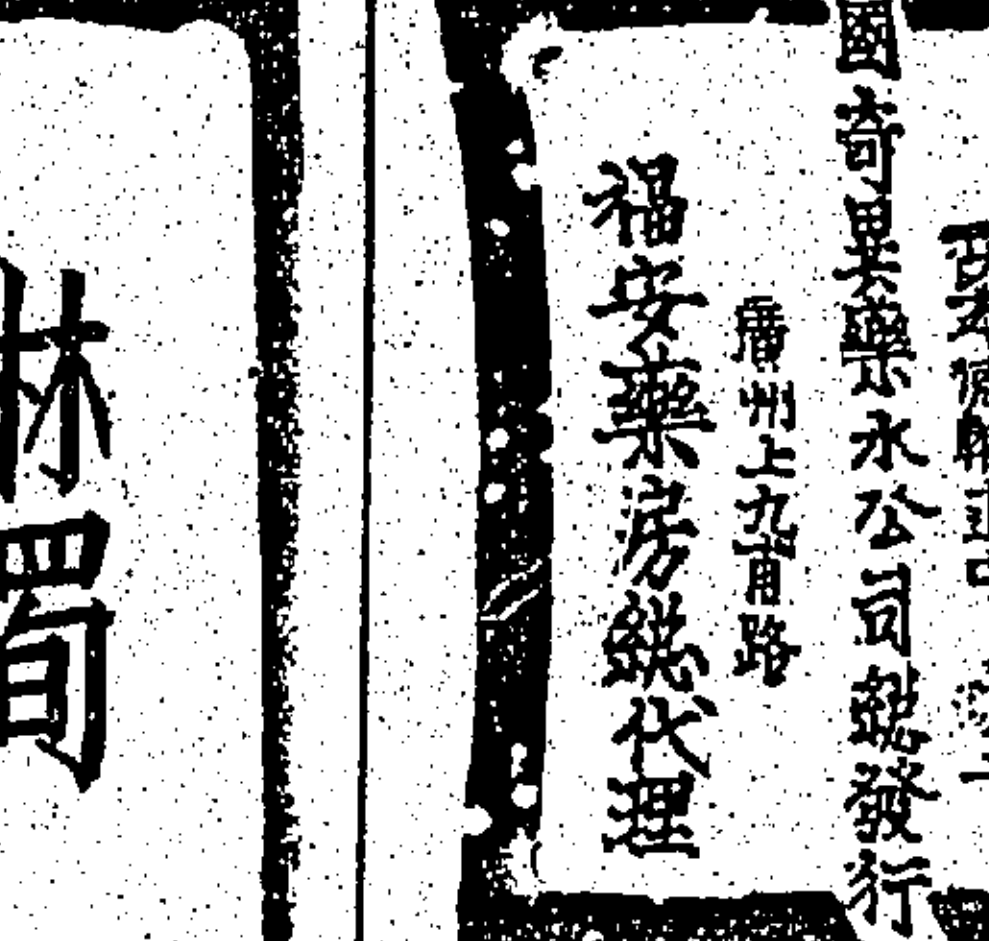 國奇異藥水公司總發行
廣州上九甫路
福安藥房總代理
林